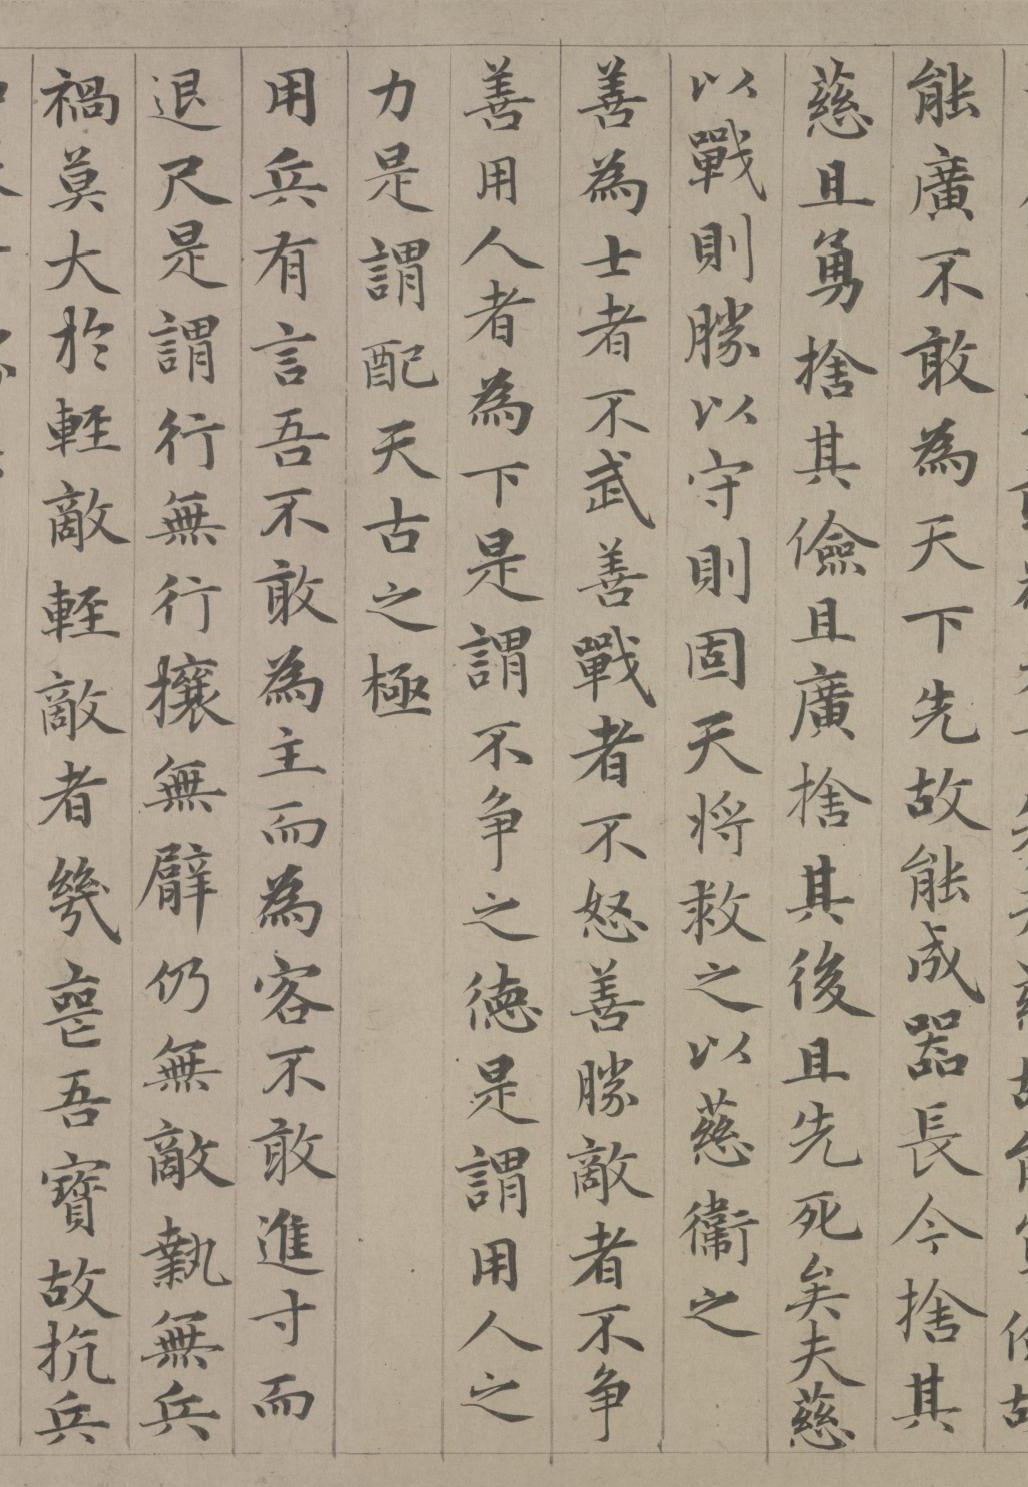 能廣不敢為天下先故能成器長今捨其
慈且勇捨其儉且廣捨其後且先死矣夫慈
以戰則勝以守則固天將救之以慈衞之
善為士者不武善戰者不怒善勝敵者不争
善用人者為下是謂不争之德是謂用人之
力是謂配天古之極
用兵有言吾不敢為主而為客不敢進寸而
退尺是謂行無行攘無臂仍無敵執無兵
禍莫大於輕敵輕敵者幾喪吾寶故抗兵